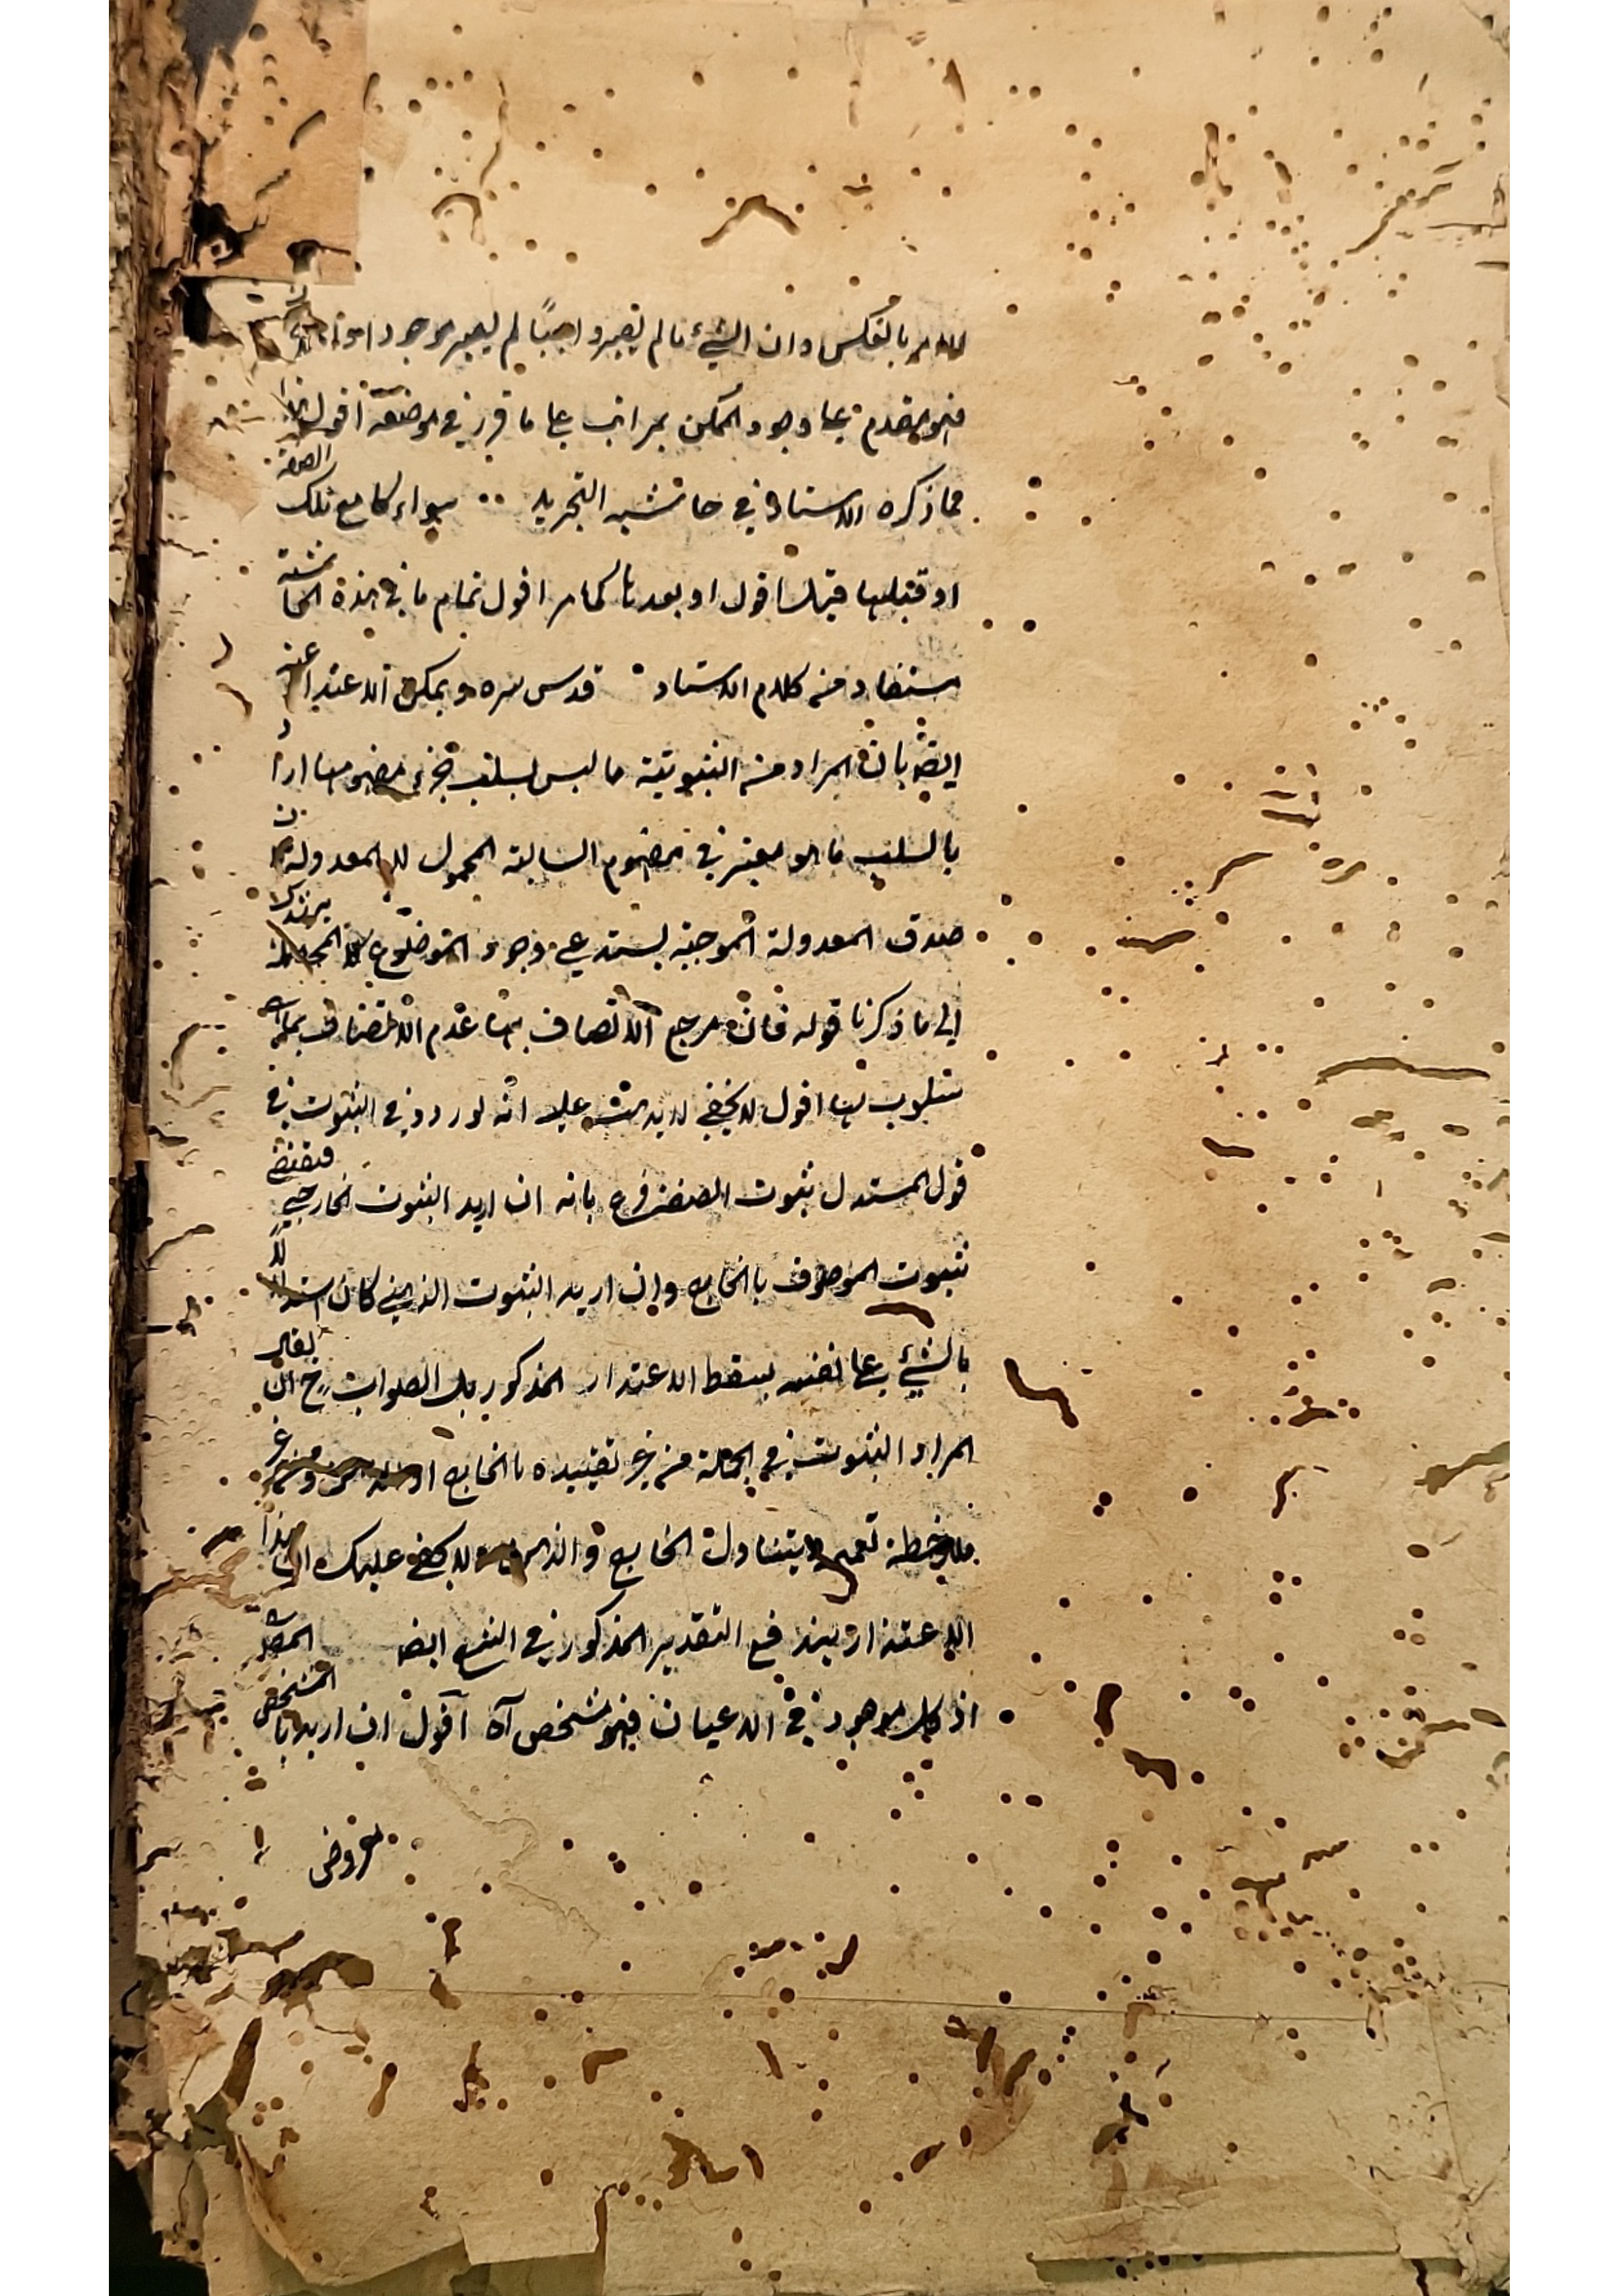 للامر بالعكس وان الشيء ما لم يصر واجبًا لم يصر موجودا
فهو مقدم على وجود الممكن بمراتب على ما قرر في موضعه اقول هذا
مما ذكره الاستاذ في حاشية التجريد سواء كا مع تلك الصفة
او قبلها قبلها اقول او بعدها كما مر اقول تمام ما في هذه الحاشية
مستفاد من كلام الاستاد قدس سره ويمكن الاعتذار عنه
ايضا بان المراد من الثبوتية ما ليس لسلب جزء مفهومها اراد
بالسلب ما هو معتبر في مفهوم السالبة المحمول لا المعدولة
صدق المعدولة الموجبة يستدعي وجود الموضوع
الى ما ذكرنا قوله فان مرجع الاتصاف بها عدم الاتصاف بما
مسلوب بها اقول لا يخفي عليك انه لو ردد في الثبوت في
قول المستدل ثبوت الصفة فرع بانه ان اريد الثبوت الخارجي فيقتضي
ثبوت الموصوف بالخارج وان اريد الثبوت الذهني كان استدلالا
بالشيء على نفسه يسقط الاعتذار المذكور بل الصواب ح ان يقال
المراد الثبوت في الجملة من غير تقييده بالخارج او الذهن ومن غير
ملاحظة تعميمه يتناول الخارج والذهن ولا يخفي عليك ان هذا
الاعتذار يندفع التقدير المذكور في المنع ايضا
اذ كل موجود في الاعيان فهو مشخص آه اقول ان اريد بالمشخص
معروض